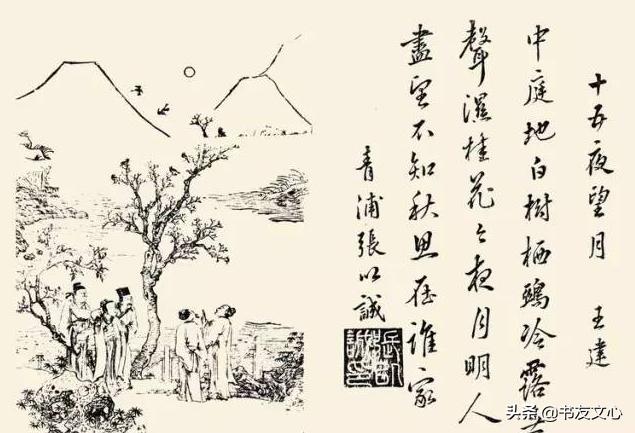 十五夜望月 王建
中庭地白樹栖鴉冷露無
聲濕桂花今夜月明人
盡望不知秋思在誰家
青浦張以誠
头条 @书友文心